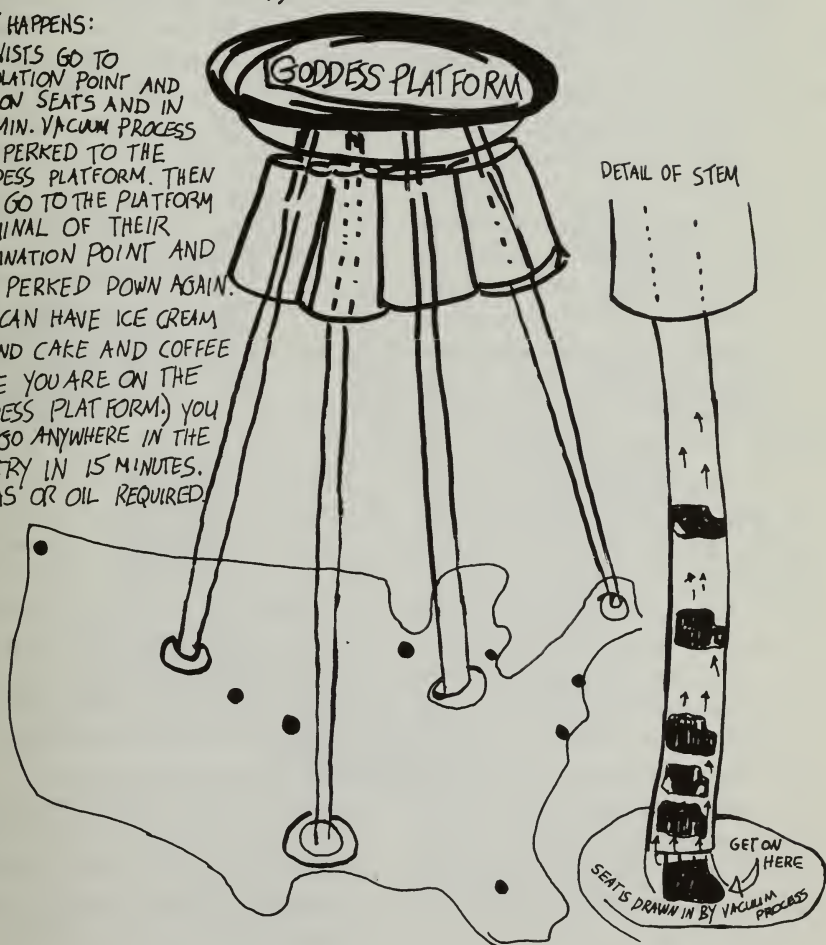 HAPPENS:
GO TO
POINT AND
ON SEATS AND IN
MIN. VACUUM PROCESS
PERKED TO THE
PLATFORM. THEN
GO TO THE PLATFORM
OF THEIR
POINT AND
PERKED DOWN AGAIN.
CAN HAVE ICE CREAM
AND CAKE AND COFFEE
YOU ARE ON THE
PLATFORM.) YOU
GO ANYWHERE IN THE
IN 15 MINUTES.
OR OIL REQUIRED.
GODDESS PLATFORM
DETAIL OF STEM
GET ON
HERE
SEAT IS DRAWN IN BY VACUUM
PROCESS